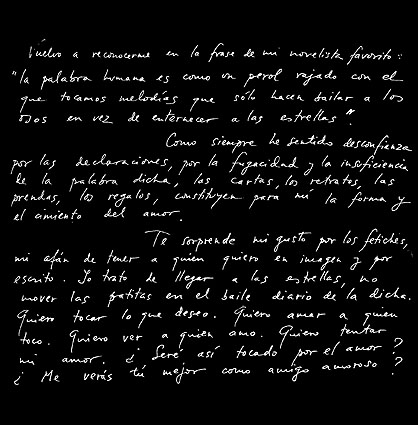 Vuelvo a reconocerme en la frase de mi novelista favorito:
"la palabra humana es como un perol rajado con el
que tocamos melodías que sólo hacen bailar a los
osos en vez de enternecer a las estrellas".
Como siempre he sentido desconfianza
por las declaraciones, por la fugacidad y la insuficiencia
de la palabra dicha, las cartas, los retratos, las
prendas, los regalos, constituyen para mí la forma y
el cimiento del amor.
Te sorprende mi gusto por los fetiches,
mi afán de tener a quien quiero en imagen y por
escrito. Yo trato de llegar a las estrellas, no
mover las patitas en el baile diario de la dicha.
Quiero tocar lo que deseo. Quiero amar a quien
toco. Quiero ver a quien amo. Quiero tentar
mi amor. ¿Seré así tocado por el amor?
¿Me verás tú mejor como amigo amoroso?